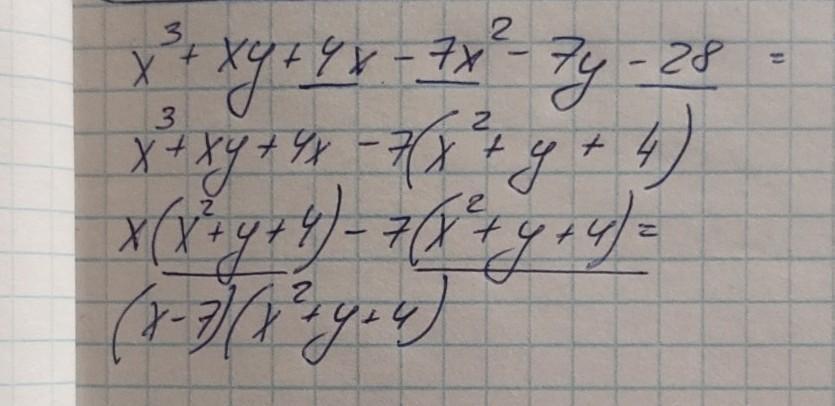 x³ + xy + 4x - 7x² - 7y - 28 =
x³ + xy + 4x - 7(x² + y + 4)
x(x² + y + 4) - 7(x² + y + 4) =
(x - 7)(x² + y + 4)